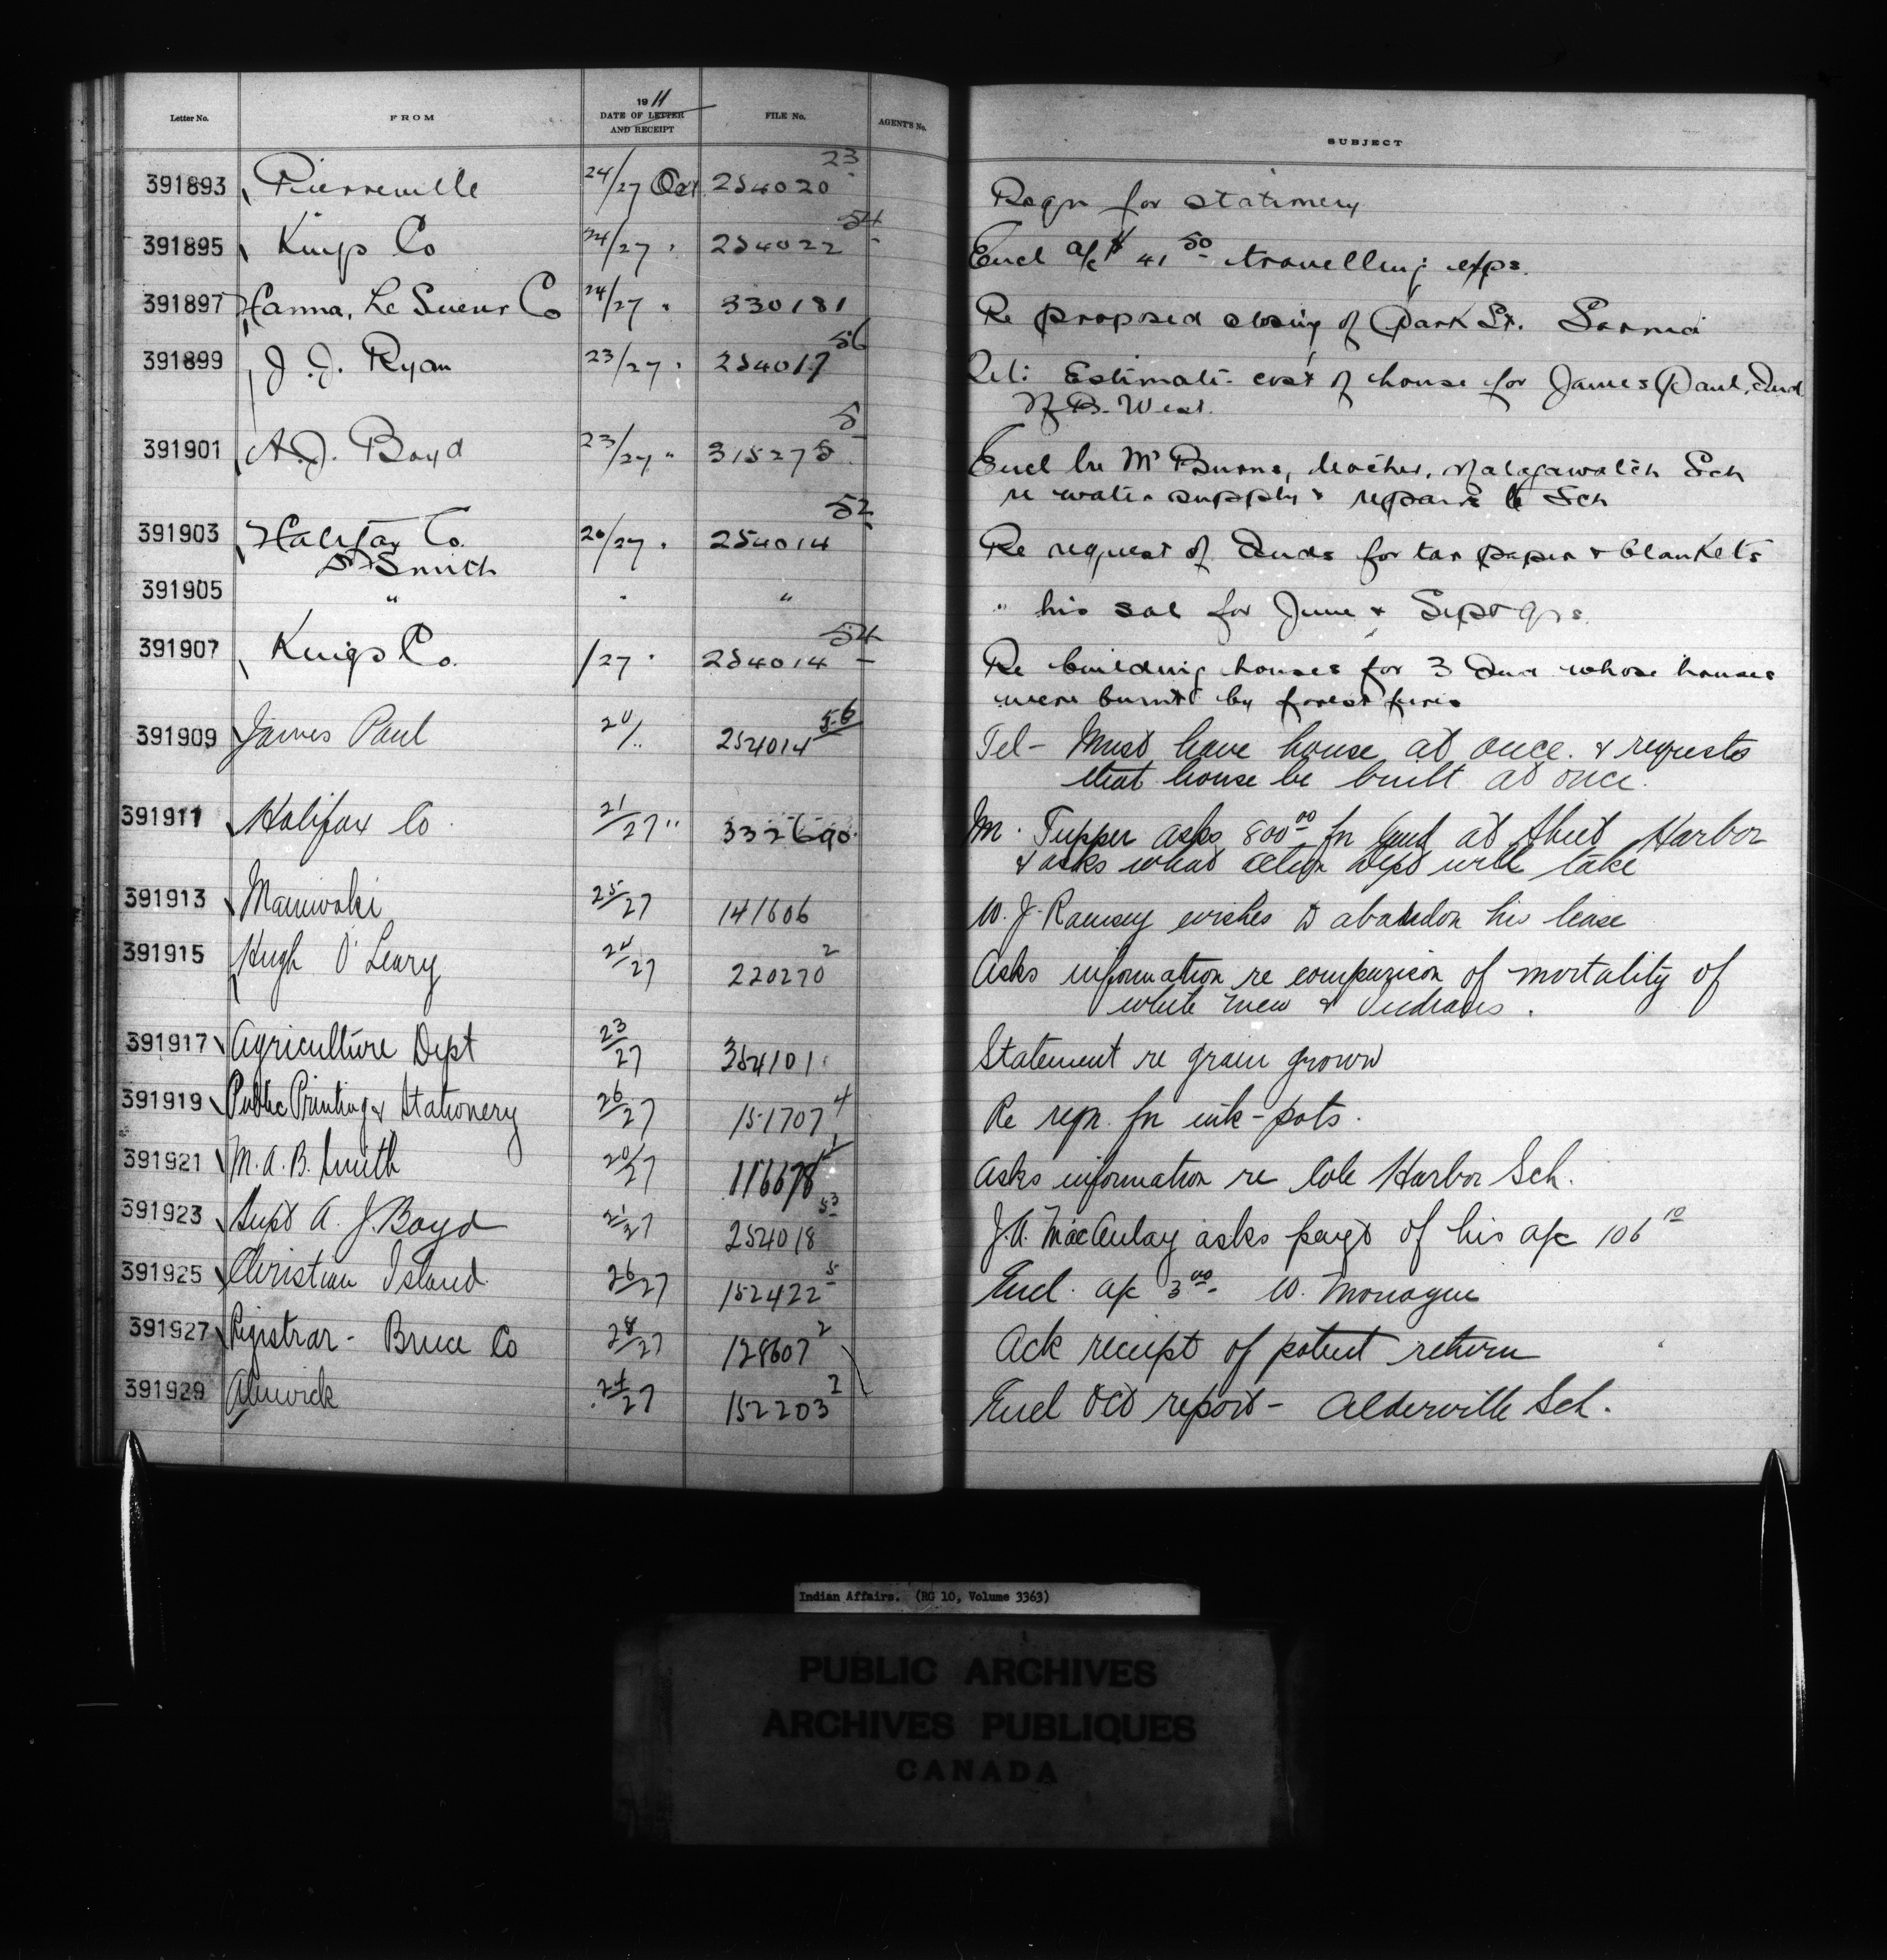 Letter No. FROM 1911 DATE OF LETTER AND RECEIPT FILE No. AGENT'S No. SUBJECT
391893 Pierreville 24/27 Oct 254020 23 Reqn for stationery
391895 Kings Co 24/27 " 254022 54 Encl a/c $41 50 travelling exps.
391897 Hanna, Le Sueur Co 24/27 " 330181 Re proposed closing of Park St. Sarnia
391899 J. J. Ryan 23/27 " 254017 56 Estimate cost of house for James Paul, Ind
N.B. West.
391901 A. J. Boyd 23/27 " 315278 5 Encl Mr Burns, teacher, Malagawatch Sch
re water supply & repairs to Sch
391903 Halifax Co. 20/27 " 254014 52 Re request of Inds for tar paper & blankets
D Smith
391905 " " " " his sal for June & Sept qrs.
391907 Kings Co. /27 " 254014 54 Re building houses for 3 Ind whose houses
were burnt by forest fires
391909 James Paul 24/" 254014 56 Tel - Must have house at once. & requests
that house be built at once.
391911 Halifax Co. 21/27 " 332690 M. Tupper asks 800 00 for land at Sheet Harbor
& asks what action Dept will take
391913 Maniwaki 25/27 141606 W. J. Ramsey wishes to abandon his lease
391915 Hugh O'Leary 24/27 220270 2 Asks information re comparison of mortality of
white men & Indians.
391917 Agriculture Dept 23/27 354101 Statement re grain grown
391919 Public Printing & Stationery 26/27 151707 4 Re reqn. for ink-pots.
391921 M. A. B. Smith 20/27 116678 Asks information re Cole Harbor Sch.
391923 Supt A. J. Boyd 21/27 254018 53 J. A. MacAulay asks payt of his a/c 106 10
391925 Christian Island 26/27 152422 5 Encl. a/c 3 00 - W. Monague
391927 Registrar - Bruce Co 24/27 128607 2 Ack receipt of patent return
391929 Alnwick 24/27 152203 2 Encl Oct report - Alderville Sch.
Indian Affairs. (RG 10, Volume 3363)
PUBLIC ARCHIVES
ARCHIVES PUBLIQUES
CANADA